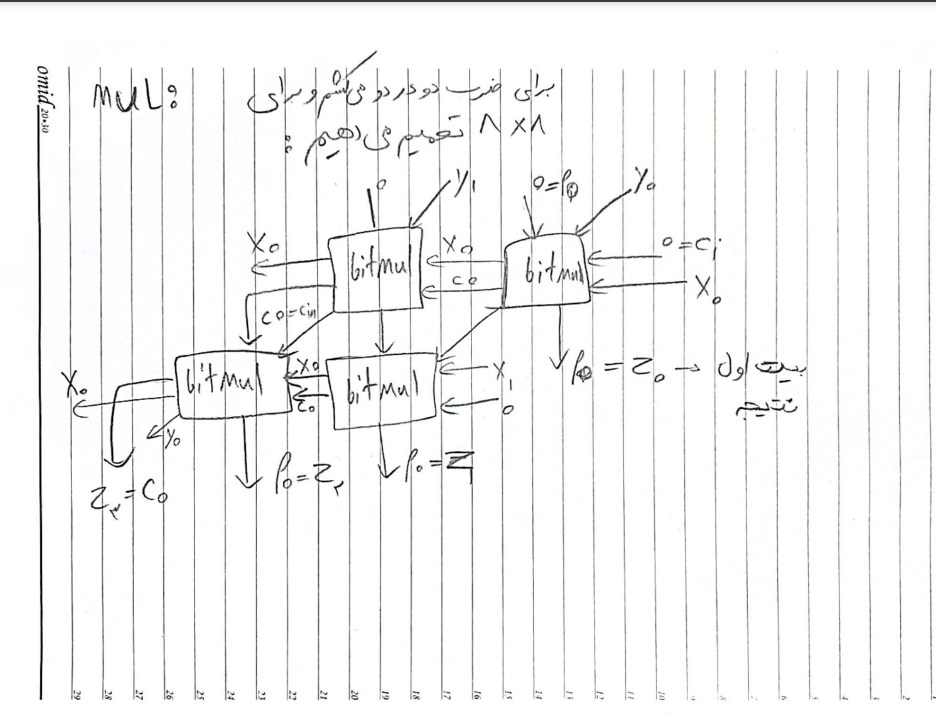 omid 20*30
MUL:
برای ضرب دو در دو می‌کشم و برای
۸×۸ تعمیم می‌دهیم:
0
Y₁
0=Pᵢ
Y₀
X₀
bitmul
X₀
C₀
bitmul
0=Cᵢ
X₀
C₀=Cin
X₀
bitmul
X₀
C₀
bitmul
X₁
0
P₀=Z₀ → بیت اول
نتیجه
Y₀
Z₃=C₀
P₀=Z₂
P₀=Z₁
29 28 27 26 25 24 23 22 21 20 19 18 17 16 15 14 13 12 11 10 9 8 7 6 5 4 3 2